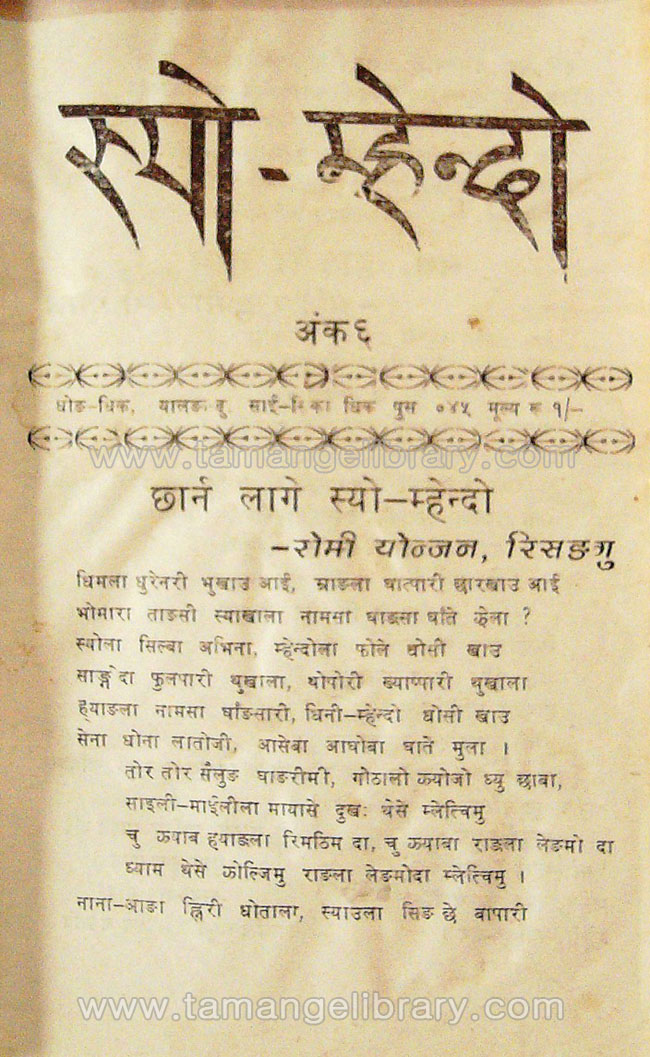 स्यो-म्हेन्दो
अंक ६
धोङ-धिक, यालङ साई- धिक पुस ०४५ मूल्य रू १/-
www.tamangelibrary.com
छार्न लागे स्यो-म्हेन्दो
-रोमी योन्जन, रिसङगु
धिमला धुरेनरी भुखाउ आई, म्राङला घात्पारी छारखाउ आई
भोमारा ताङसी स्याखाला नामसा घाङसा घाँते झेला ?
स्योला सिल्बा अभिना, म्हेन्दोला फोले थोसी खाउ
साङ्गेदा फुलपारी थुखाला, थोपोरी ख्याप्पारी थुखाला
ह्याङला नामसा घाँङसारी, धिनी-म्हेन्दो धोसी खाउ
सेना धोना लातोजी, आसेबा आघोबा घाते मुला ।
तोर तोर सैलुङ घाङरीमी, गोठालो क्योजो ध्यु छाबा,
साइली-माईलीला मायासे दुखः थेसे म्लेत्विमु
चु कयाब ह्याङला रिमठिम दा, चु कयाबा राङला लेङमो दा
ध्याम थेसे कोल्जिमु राङला लेङमोदा म्लेत्विमु ।
नाना-आङा ह्विरी धोताला, स्याउला सिङ छे बापारी
www.tamangelibrary.com